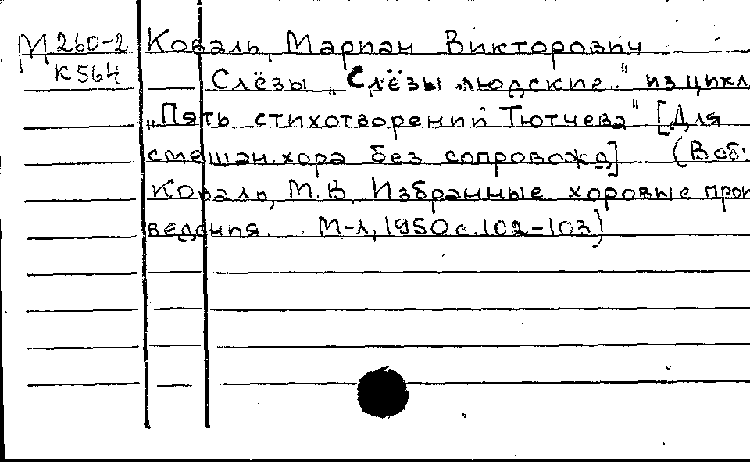 М 260-2 Коваль, Мариан Викторович
К 564 Слёзы „Слёзы людские." из цикл
„Пять стихотворений Тютчева" [Для
смешан. хора без сопровожд] (В сб:
Коваль, М.В. Избранные хоровые прои
ведения. М-Л, 1950 с. 102-103)